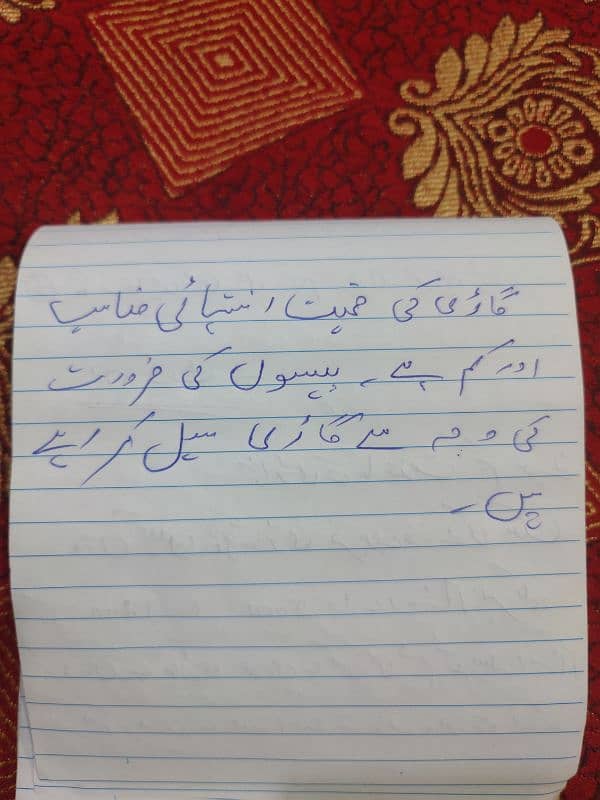 گاڑی کی قمیت انتہائی مناسب
اور کم ہے۔ پیسوں کی ضرورت
کی وجہ سے گاڑی سیل کر رہے
ہیں۔